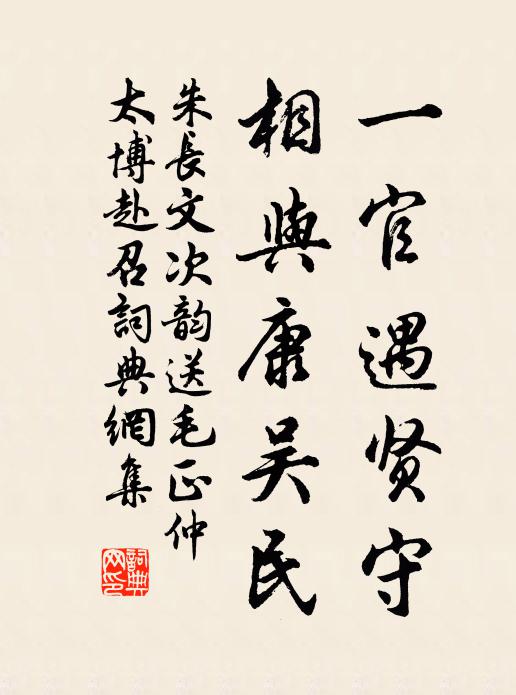 一官遇贤守
相與康吴民
朱長文次韵送毛正仲
太博赴召詞典網集
詞典网印